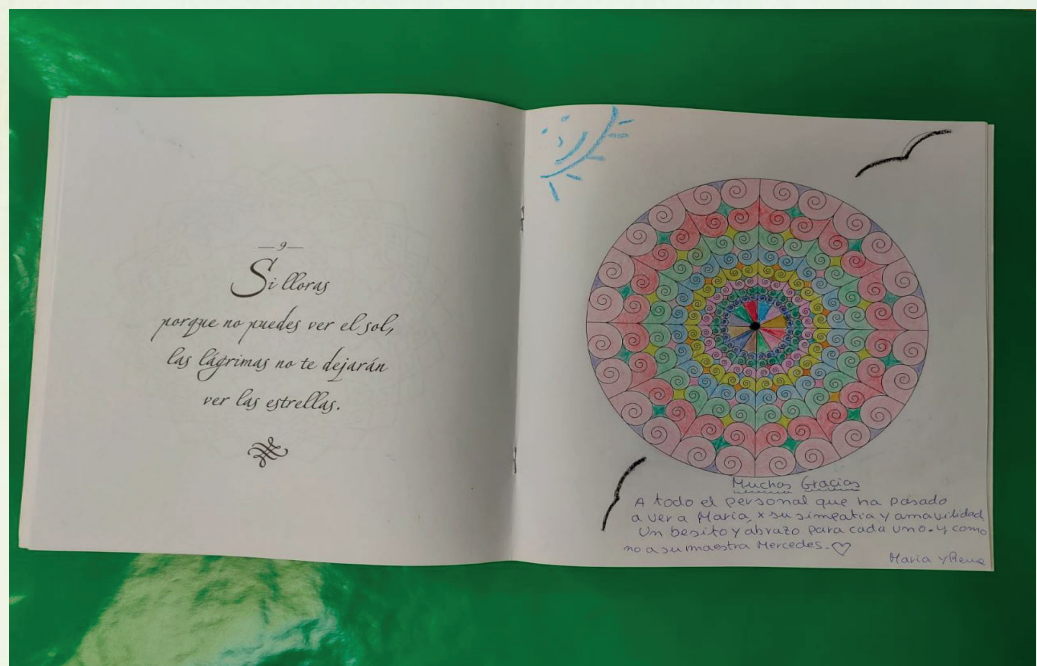 —9—
Si lloras
porque no puedes ver el sol,
las lágrimas no te dejarán
ver las estrellas.
Muchas Gracias
A todo el personal que ha pasado
a ver a Maria, x su simpatia y amavilidad
Un besito y abrazo para cada uno. y como
no a su maestra Mercedes.
Maria y